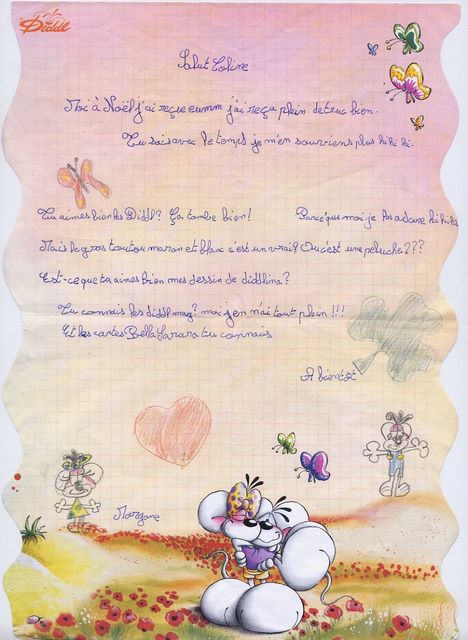 Diddl
Salut Coline
Moi à Noël j'ai reçue eumm j'ai reçu plein de truc bien.
Tu sais avec le temps je m'en souviens plus hi hi hi.
Tu aimes bien les Diddl? Ça tombe bien! Parce que moi je les adore hi hi hi
Mais le gros toutou maron et blanc c'est un vrai? Ou c'est une peluche???
Est-ce que tu aimes bien mes dessin de diddlina?
Tu connais les diddl mag? moi j'en n'ai tout plein!!!
Et les cartes Bella Sarara tu connais
A bientôt
Morgane